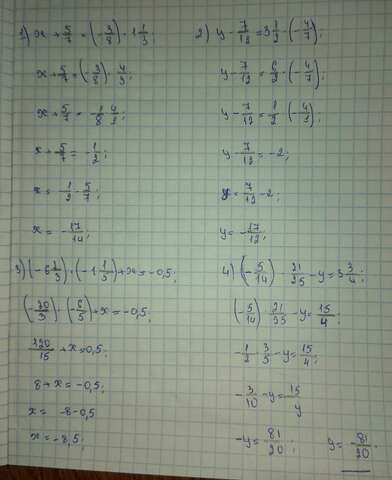 1) x + 5/7 = (-3/8) · 1 1/3;
x + 5/7 = (-3/8) · 4/3;
x + 5/7 = -3/8 · 4/3;
x + 5/7 = -1/2;
x = -1/2 - 5/7;
x = -17/14;
2) y - 7/12 = 3 1/2 · (-4/7);
y - 7/12 = · (-4/7);
y - 7/12 =
y - 7/12 = -2;
y = 7/12 - 2;
y = -17/12;
3) (-6 2/3) · (-1 1/5) + x = -0,5;
(-20/3) · (-6/5) + x = -0,5;
120/15 + x = 0,5;
8 + x = -0,5;
x = -8 - 0,5
x = -8,5;
4) (-5/14) · 21/25 - y = 3 3/4;
(-5/14) · 21/25 - y = 15/4;
-1/2 · 3/5 - y = 15/4;
-3/10 - y = 15/4
-y = 81/20; y = -81/20;